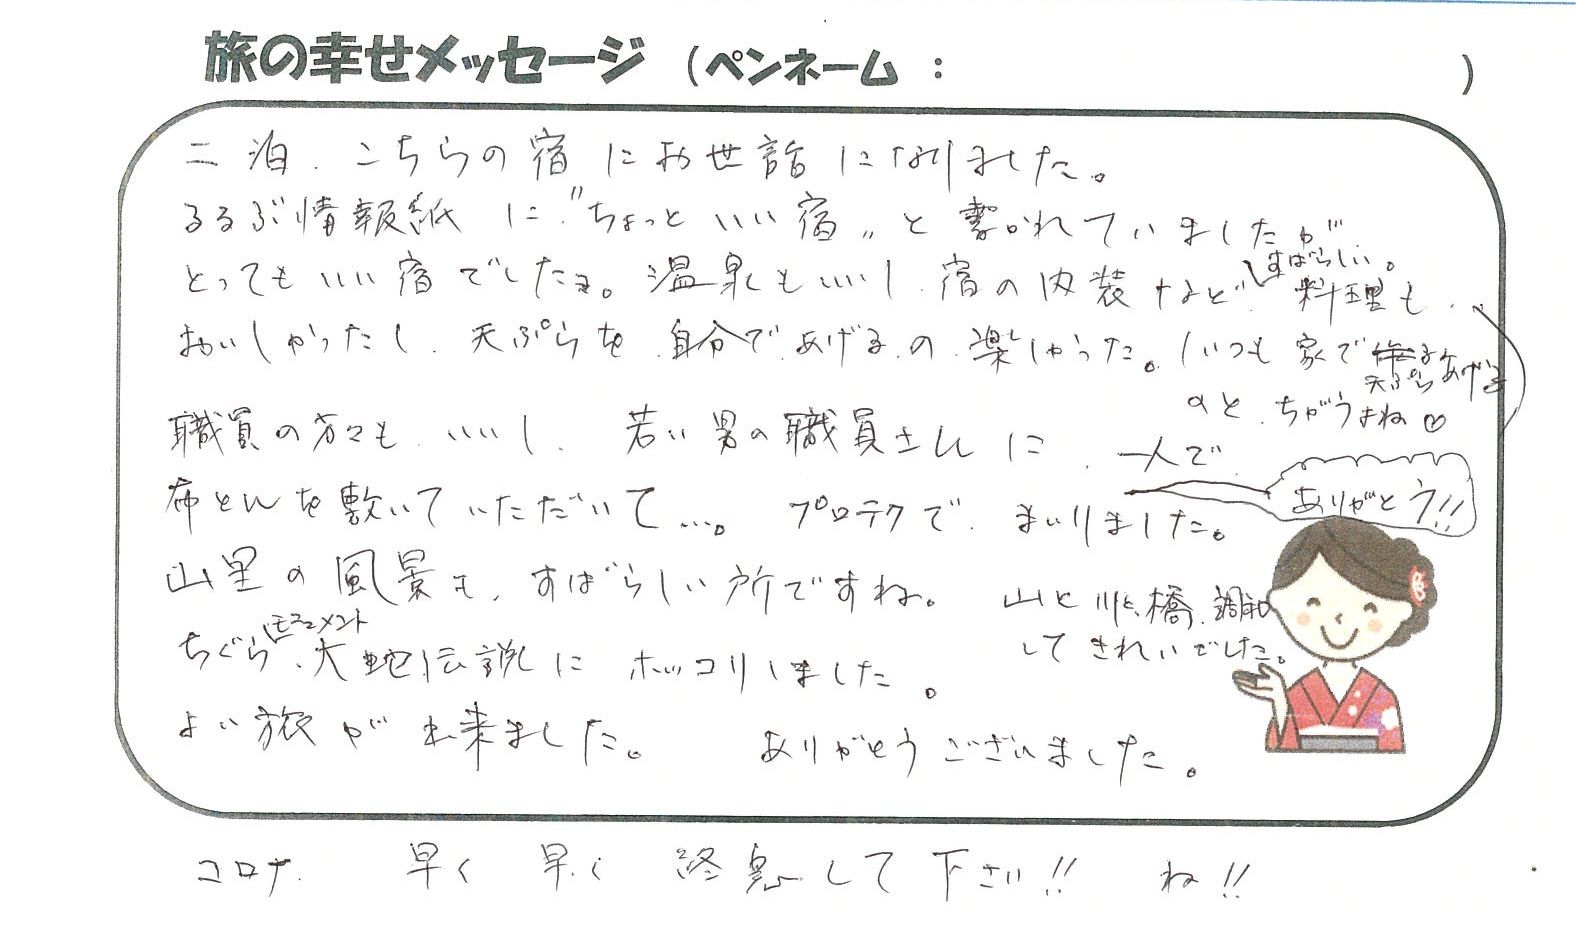 旅の幸せメッセージ （ペンネーム ： ）
二泊、こちらの宿にお世話になりました。
るるぶ情報紙に〝ちょっといい宿〟と書かれていましたが
とってもいい宿でしたよ。温泉もいいし、宿の内装などすばらしい。料理も、
おいしかったし、天ぷらを自分であげるの楽しかった。（いつも家で天ぷらあげる
のと、ちがうよね♡）
職員の方々も、いいし、若い男の職員さんに、一人で
布とんを敷いていただいて…。プロテクで、まいりました。
ありがとう!!
山里の風景も、すばらしい所ですね。 山と川と、橋、調和
してきれいでした。
ちぐらモニュメント、大蛇伝説にホッコリしました。
よい旅が出来ました。 ありがとうございました。
コロナ、早く早く終息して下さい!! ね!!